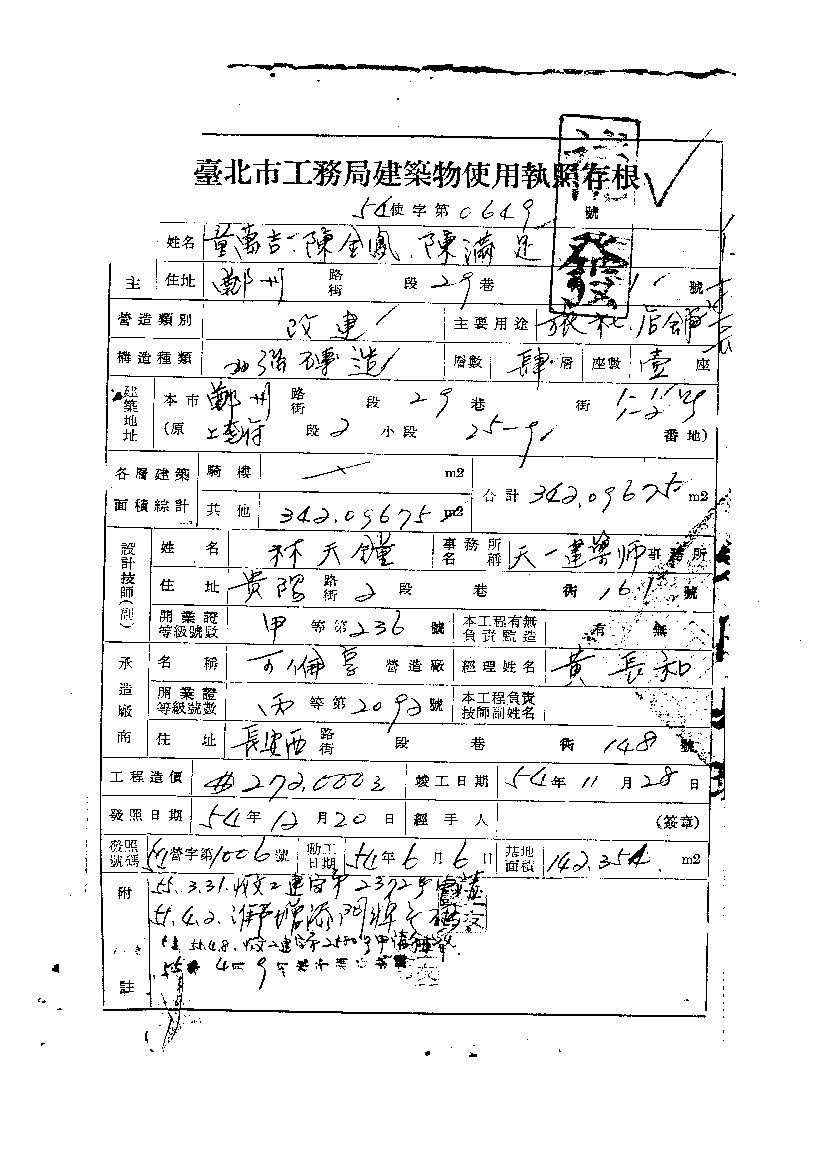 臺北市工務局建築物使用執照存根
54使字第0649號
姓名 童萬吉、陳金鳳、陳滿足
主 住址 鄭州 路街 段 29巷 號
營造類別 改建 主要用途 旅社店舖
構造種類 加強磚造 層數 肆層 座數 壹座
建築地址 本市 鄭州 路街 段 29巷 街 1-1 1-2號
(原 段2小段 25-9 番地)
各層建築面積綜計 騎樓 m2 合計 342.09675 m2
其他 342.09675 m2
設計技師(副) 姓名 林天鐘 事務所名稱 天一建築師事務所
住址 貴陽 路街 2段 巷 街 161號
開業證等級號數 甲等第236號 本工程有無負責監造 有 無
承造廠商 名稱 營造廠 經理姓名 黃長和
開業證等級號數 丙等第2092號 本工程負責技師副姓名
住址 長安西 路街 段 巷 街 148號
工程造價 272,000元 竣工日期 54年11月28日
發照日期 54年12月20日 經手人 (簽章)
發照號碼 54營字第1006號 動工日期 54年6月6日 基地面積 142.354 m2
附註 55.3.31.收工建字第2372號
55.4.2.准予增添
55.4.8.收工建字